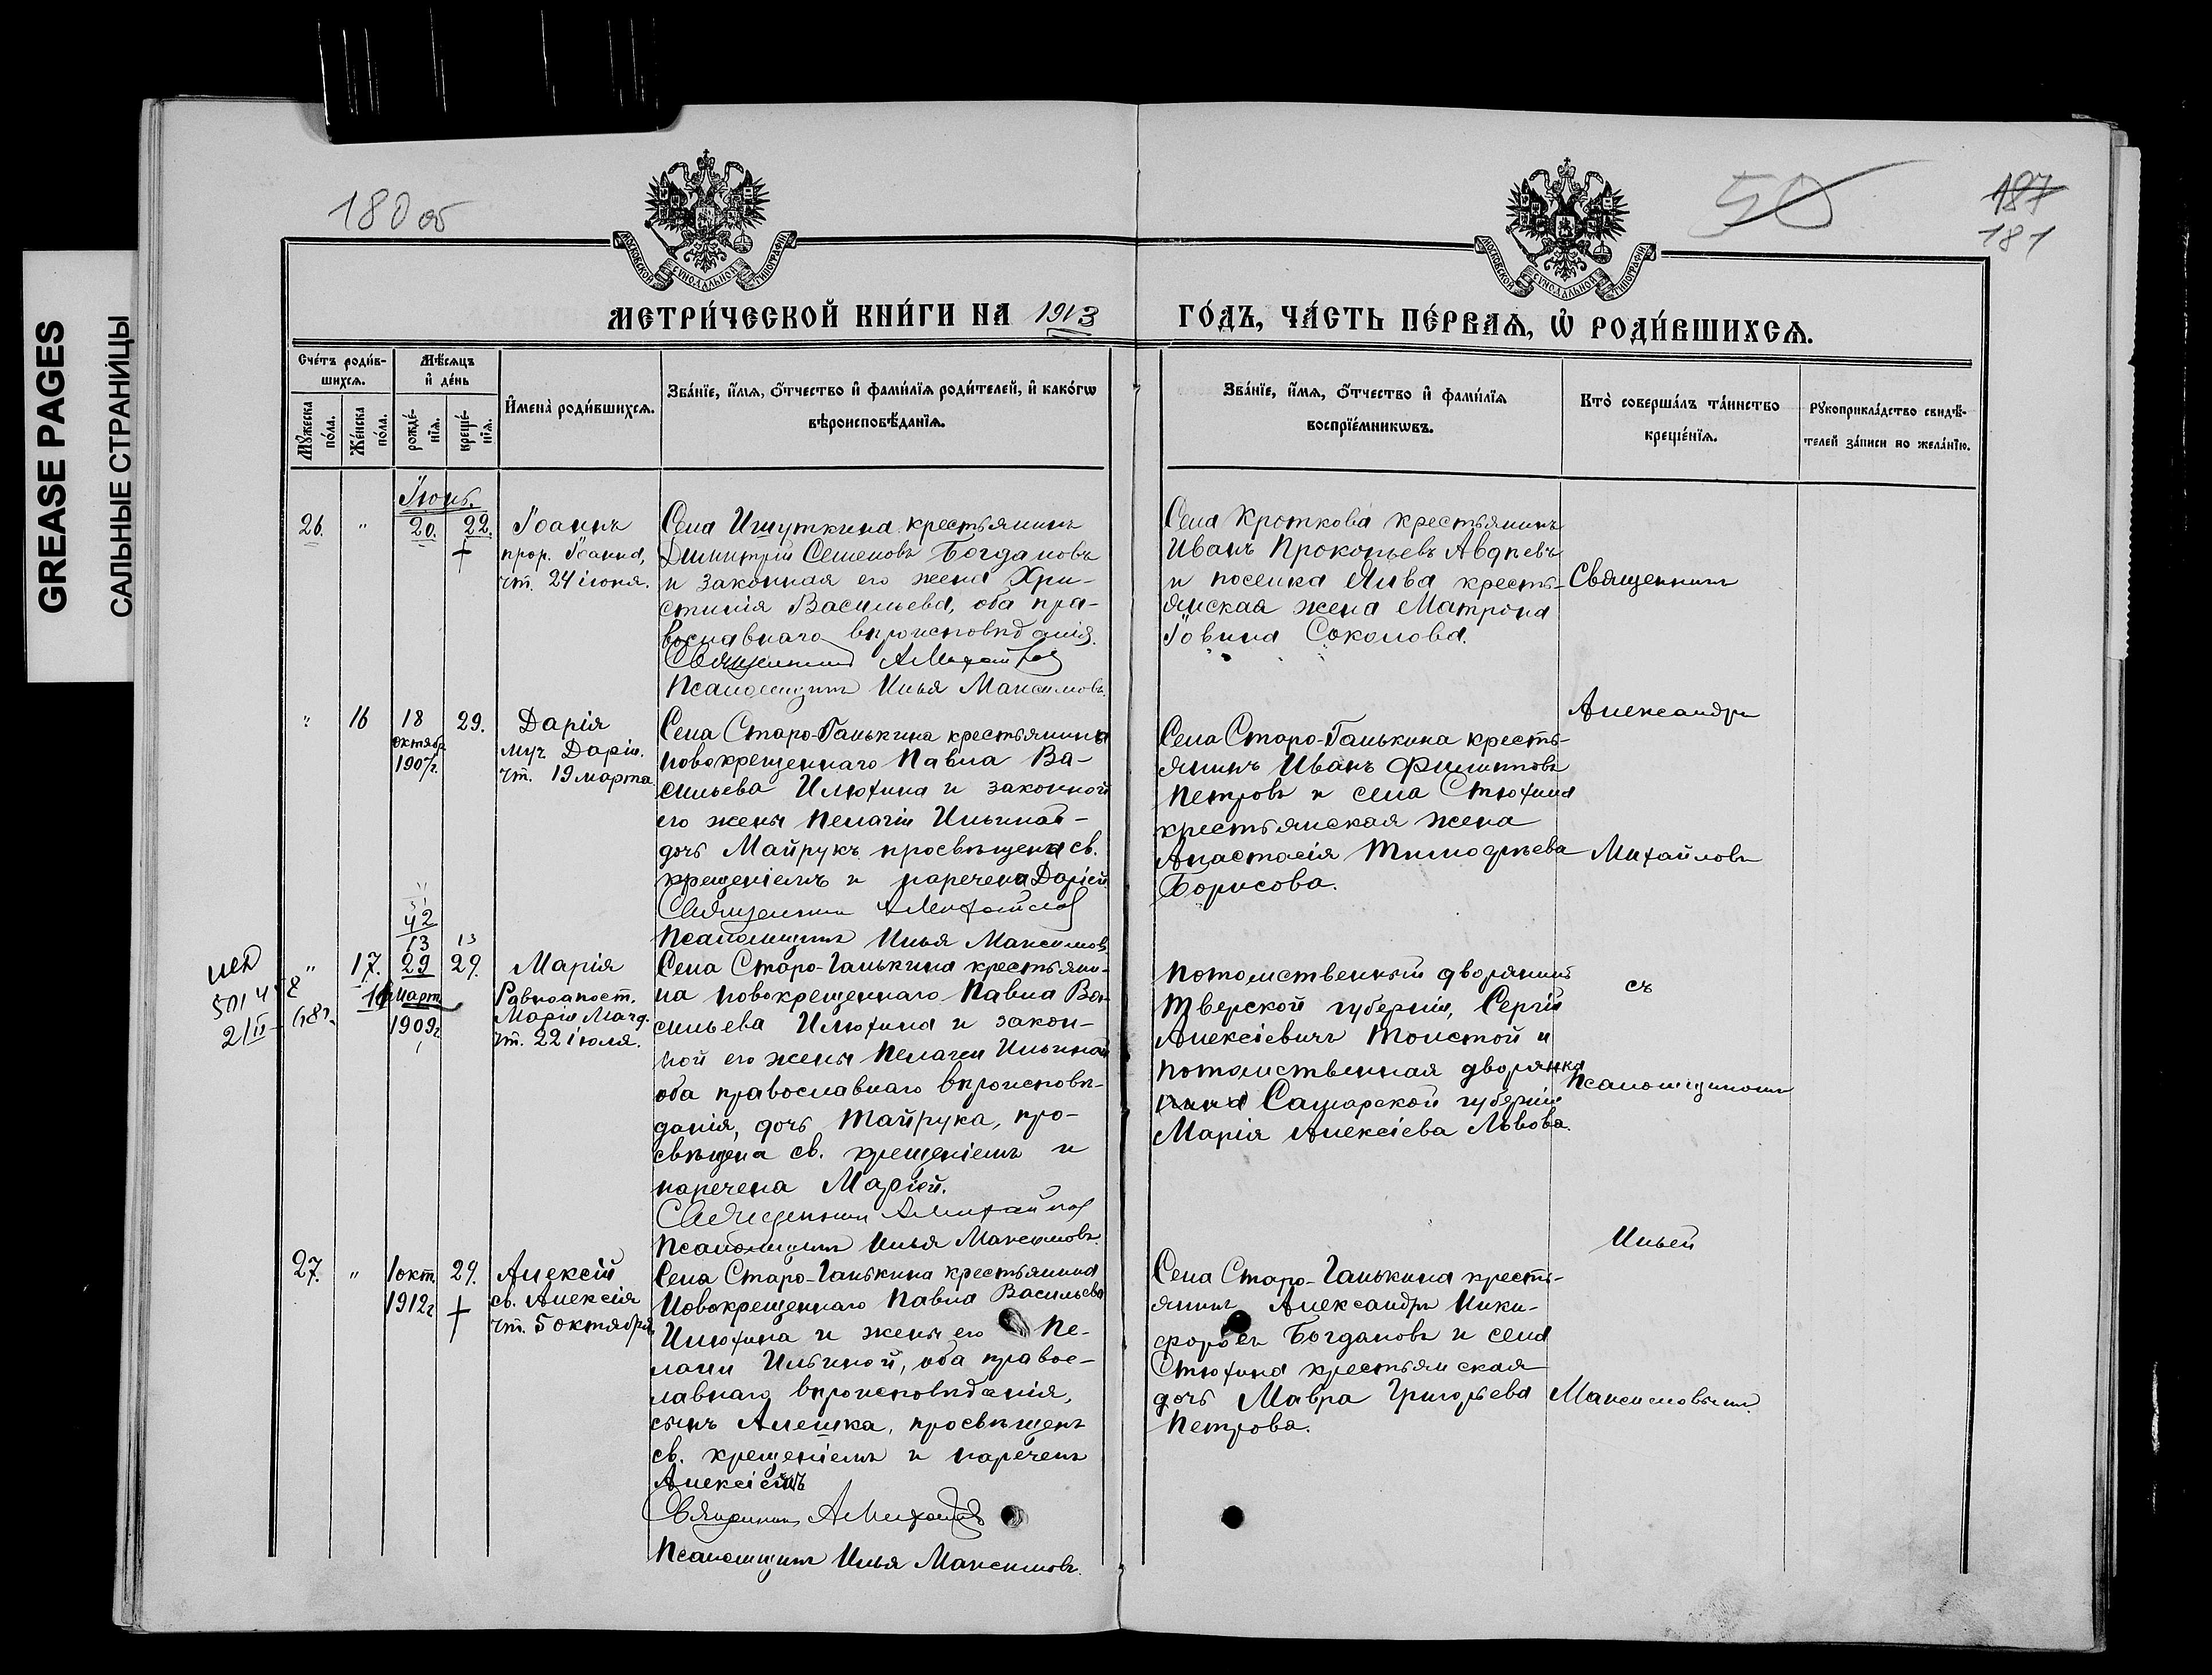 GREASE PAGES
САЛЬНЫЕ СТРАНИЦЫ
180 об
50
187
181
МОСКОВСКОЙ СѴНОДАЛЬНОЙ ТИПОГРАФІИ
МОСКОВСКОЙ СѴНОДАЛЬНОЙ ТИПОГРАФІИ
МЕТРИ́ЧЕСКОЙ КНИ́ГИ НА 1913
ГО́ДЪ, ЧА́СТЬ ПЕ́РВАѦ, Ѡ҆ РОДИ́ВШИХСѦ.
Сче́тъ роди́в-
шихсѧ.
Мѣ́сѧцъ
и҆ де́нь
Мꙋ́жеска
по́ла.
Же́нска
по́ла.
рожде́-
нїѧ.
креще́-
нїѧ.
И҆мена̀ роди́вшихсѧ.
Зва́нїе, и҆́мѧ, ѻ҆́тчество и҆ фами́лїѧ роди́телей, и҆ како́гѡ
вѣроисповѣ́данїѧ.
Зва́нїе, и҆́мѧ, ѻ҆́тчество и҆ фами́лїѧ
воспрїе́мникѡвъ.
Кто̀ соверша́лъ та́инство
креще́нїѧ.
Рꙋкоприкла́дство свидѣ́-
телей за́писи по жела́нїю.
Іюнь.
26. " 20. 22. Іоаннъ
прор. Іоанна,
чт. 24 іюня.
Села Ишуткина крестьянинъ
Димитрій Семеновъ Богдановъ
и законная его жена Хри-
стинія Васильева, оба пра-
вославнаго вѣроисповѣданія.
Священникъ А Михайлов
Псаломщикъ Илья Максимовъ.
Села Кроткова крестьянинъ
Иванъ Прокопьевъ Авдѣевъ
и поселка Яива кресть-
янская жена Матрона
Іовина Соколова.
Священникъ
" 16 18 29. Дарія
октябр.
1907г.
муч. Даріи.
чт. 19 марта
Села Старо-Ганькина крестьянина
новокрещеннаго Павла Ва-
сильева Илюхина и законной
его жены Пелагіи Ильиной -
дочь Майрукъ просвѣщена св.
крещеніемъ и наречена Даріей
Священникъ А Михайлов
Псаломщикъ Илья Максимов
Александръ
Села Старо-Ганькина кресть-
янинъ Иванъ Филипповъ
Петровъ и села Стюхина
крестьянская жена
Анастасія Тимофѣева
Борисова.
Михайловъ
42
13 13
" 17. 29 29. Марія
Март.
1909г.
501458
2/II 68г.
Равноапост.
Марія Магд.
чт. 22 іюля.
Села Старо-Ганькина крестьяни-
на новокрещеннаго Павла Ва-
сильева Илюхина и закон-
ной его жены Пелагеи Ильиной
оба православнаго вѣроисповѣ-
данія, дочь Тайрука, про-
свѣщена св. крещеніемъ и
наречена Маріей.
Священникъ А Михайлов
Псаломщикъ Илья Максимовъ.
Потомственный дворянинъ
Тверской губерніи, Сергѣй
Алексіевичъ Толстой и
потомственная дворянка
Самарской губерніи
Марія Алексіева Львова.
съ
Псаломщикомъ
Ильей
27. " 1 окт. 29. Алексій
1912г
св. Алексія
чт. 5 октября
Села Старо-Ганькина крестьянина
Новокрещеннаго Павла Васильева
Илюхина и жены его Пе-
лагеи Ильиной, оба право-
лавнаго вѣроисповѣданія,
сынъ Алешка, просвѣщенъ
св. крещеніемъ и нареченъ
Алексіемъ
Священникъ А Михайлов
Псаломщикъ Илья Максимовъ.
Села Старо-Ганькина кресть-
янинъ Александръ Ники-
форовъ Богдановъ и села
Стюхина крестьянская
дочь Мавра Григорьева
Петрова.
Максимовымъ.